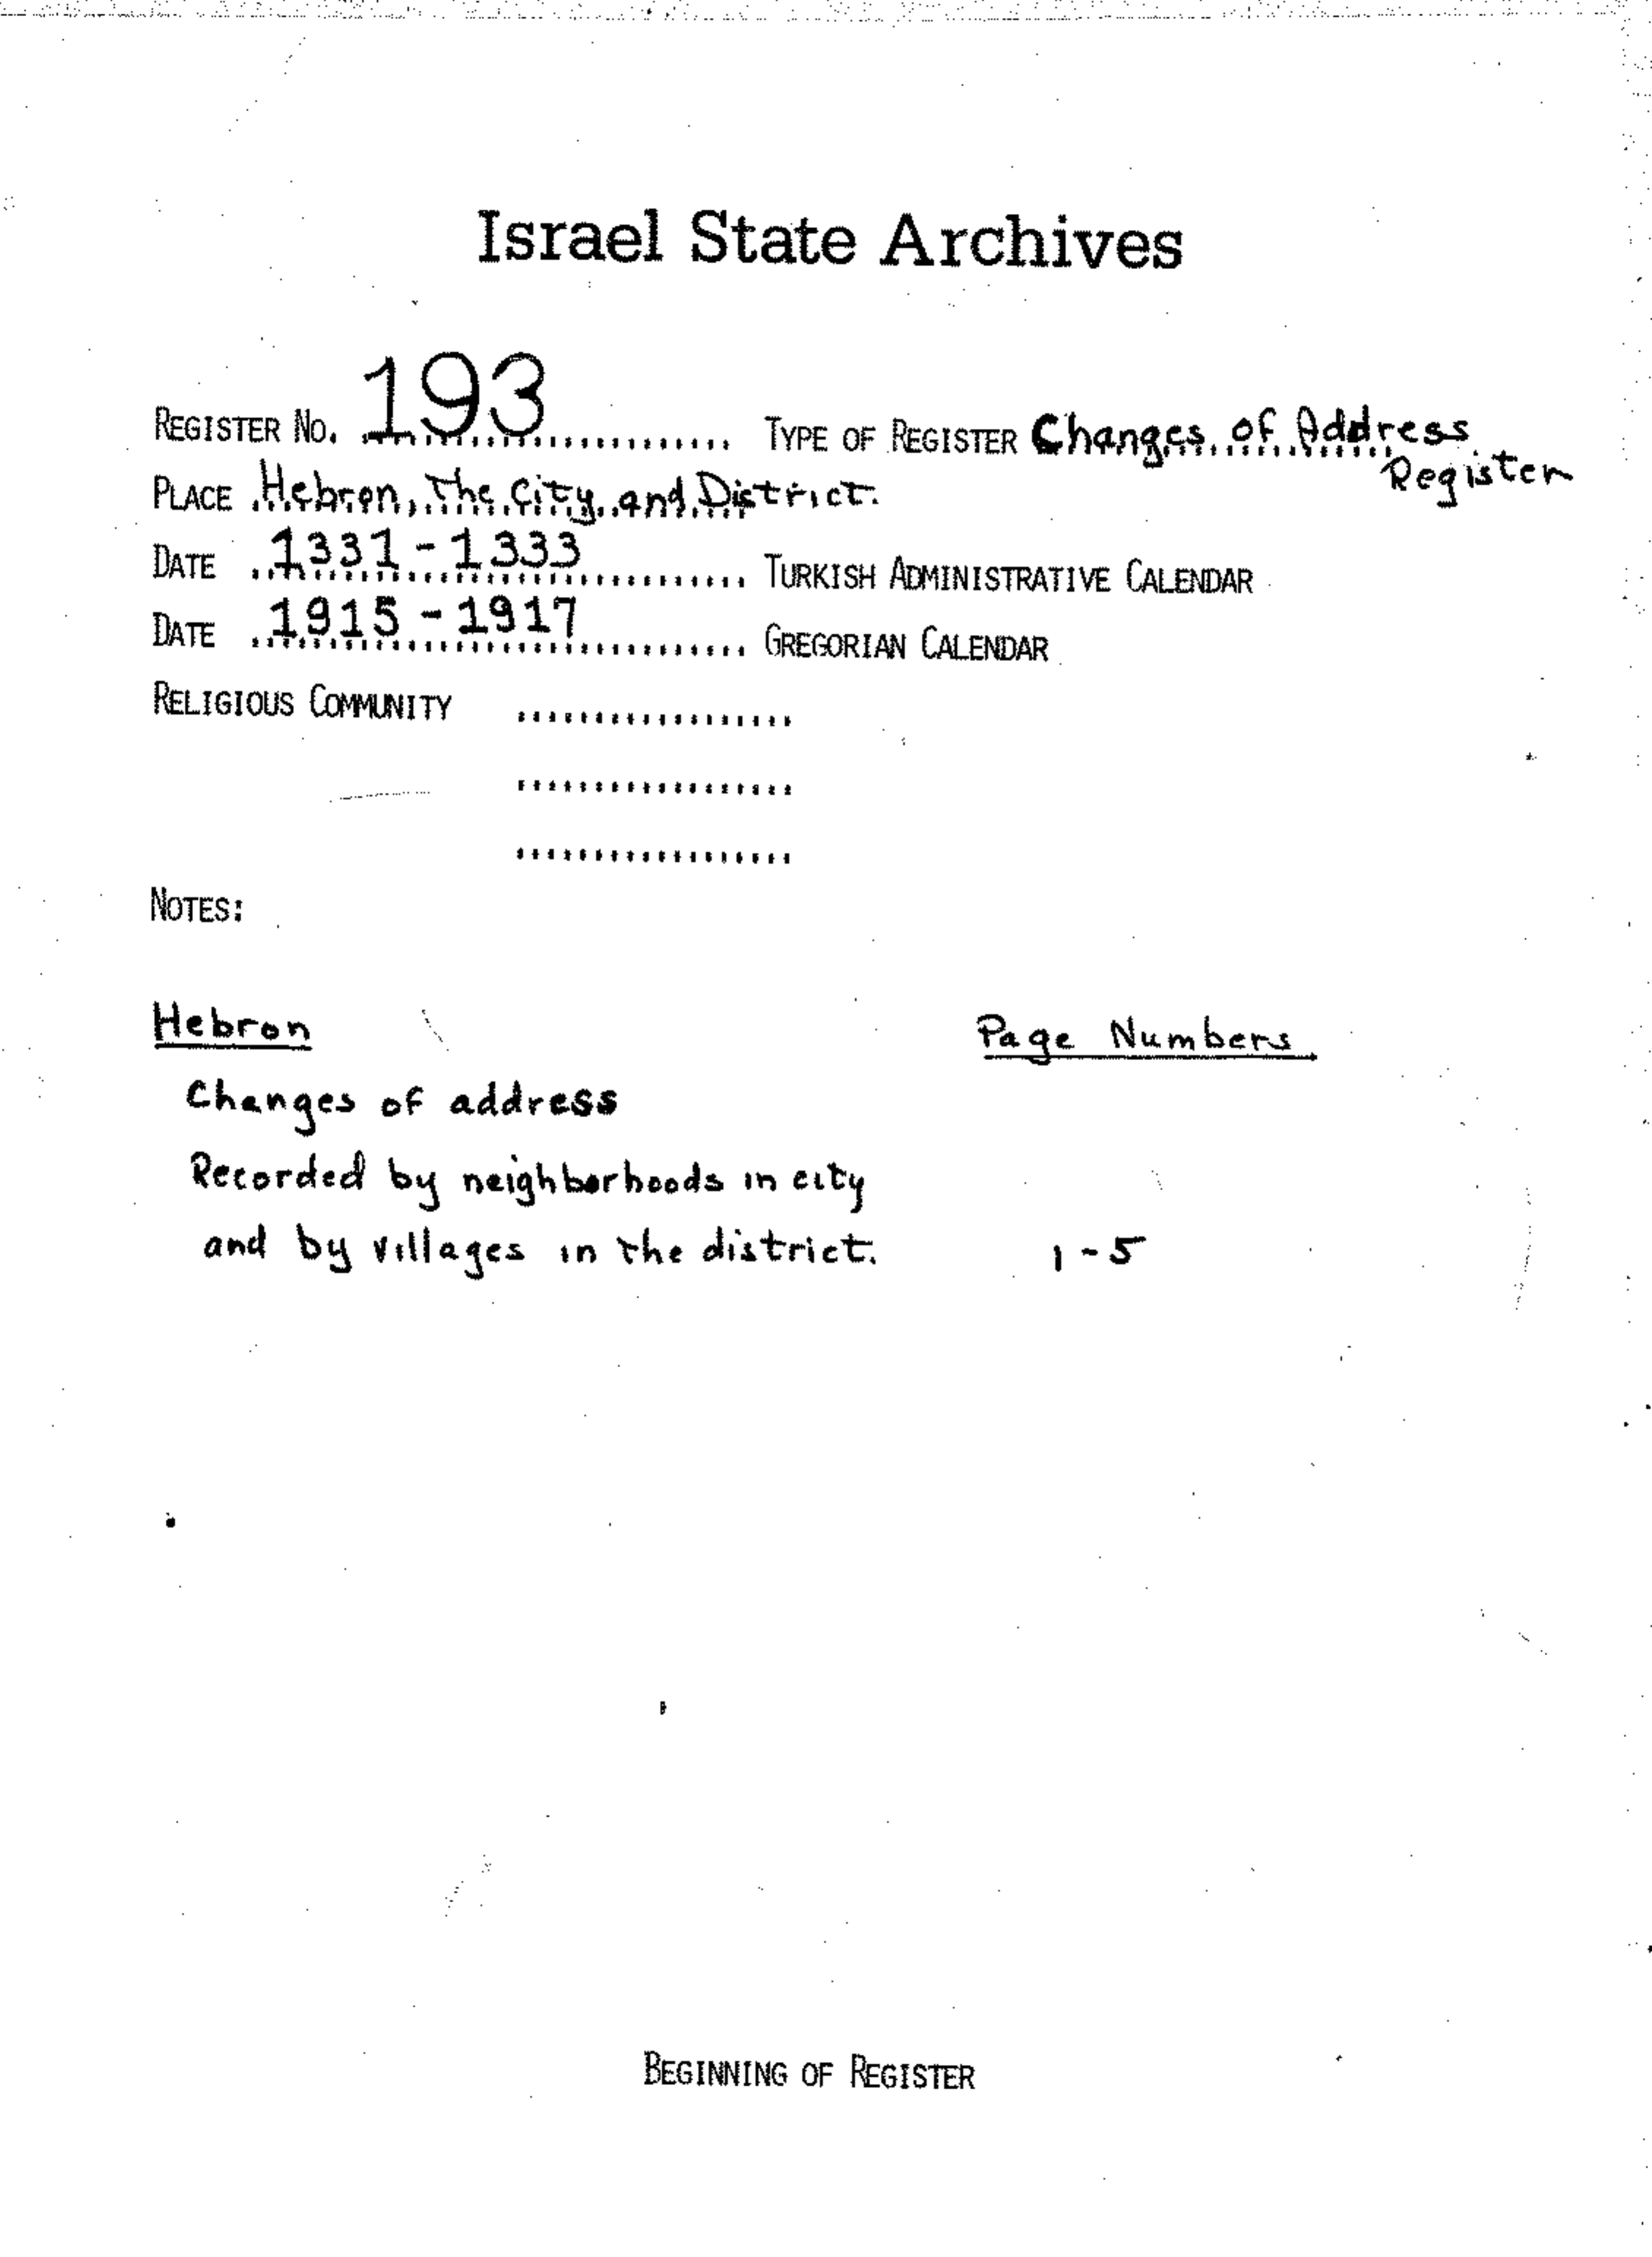 Israel State Archives
REGISTER NO. 193 TYPE OF REGISTER Changes of Address
Register
PLACE Hebron, The City and District.
DATE 1331-1333 TURKISH ADMINISTRATIVE CALENDAR
DATE 1915-1917 GREGORIAN CALENDAR
RELIGIOUS COMMUNITY
NOTES:
Hebron Page Numbers
Changes of address
Recorded by neighborhoods in city
and by villages in the district. 1-5
BEGINNING OF REGISTER